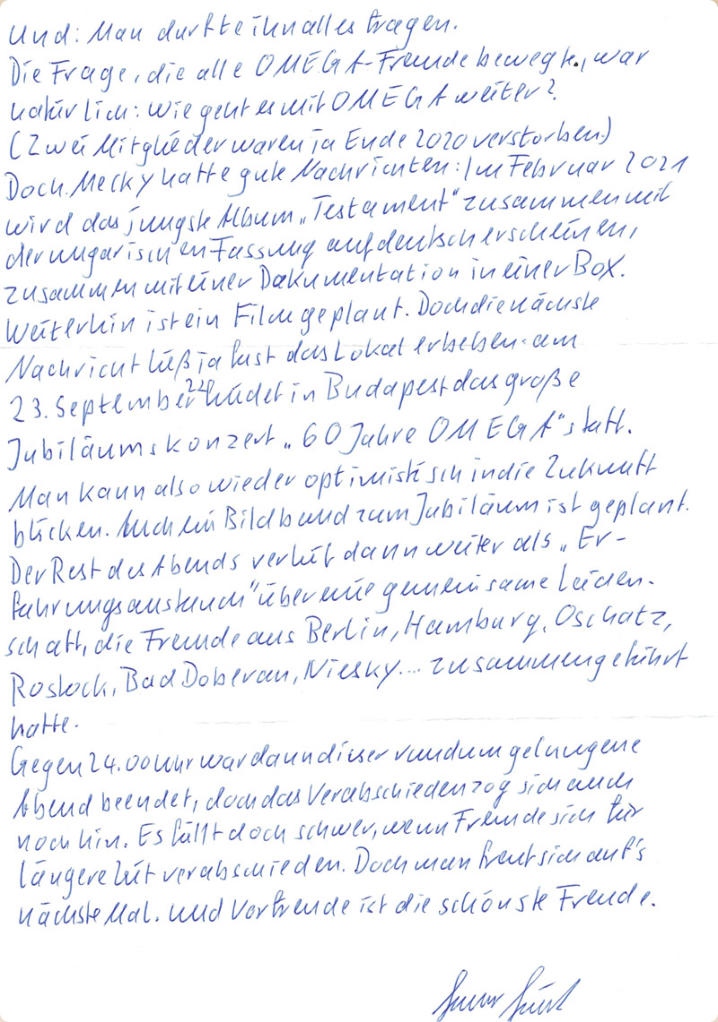 Und: Man durfte ihn alles fragen.
Die Frage, die alle OMEGA-Freunde bewegte, war
natürlich: wie geht es mit OMEGA weiter?
(Zwei Mitglieder waren ja Ende 2020 verstorben)
Doch Mecky hatte gute Nachrichten: Im Februar 2021
wird das jüngste Album „Testament" zusammen mit
der ungarischen Fassung auf deutsch erscheinen,
zusammen mit einer Dokumentation in einer Box.
Weiterhin ist ein Film geplant. Doch die nächste
Nachricht ließ ja fast das Lokal erbeben: am
23. September 22 findet in Budapest das große
Jubiläumskonzert „60 Jahre OMEGA" statt.
Man kann also wieder optimistisch in die Zukunft
blicken. Auch ein Bildband zum Jubiläum ist geplant.
Der Rest des Abends verlief dann weiter als „Er-
fahrungsaustausch" über eine gemeinsame Leiden-
schaft, die Freunde aus Berlin, Hamburg, Oschatz,
Rostock, Bad Doberan, Niesky... zusammengeführt
hatte.
Gegen 24.00 Uhr war dann dieser rundum gelungene
Abend beendet, doch das Verabschieden zog sich auch
noch hin. Es fällt doch schwer, wenn Freunde sich für
längere Zeit verabschieden. Doch man freut sich auf's
nächste Mal. Und Vorfreude ist die schönste Freude.